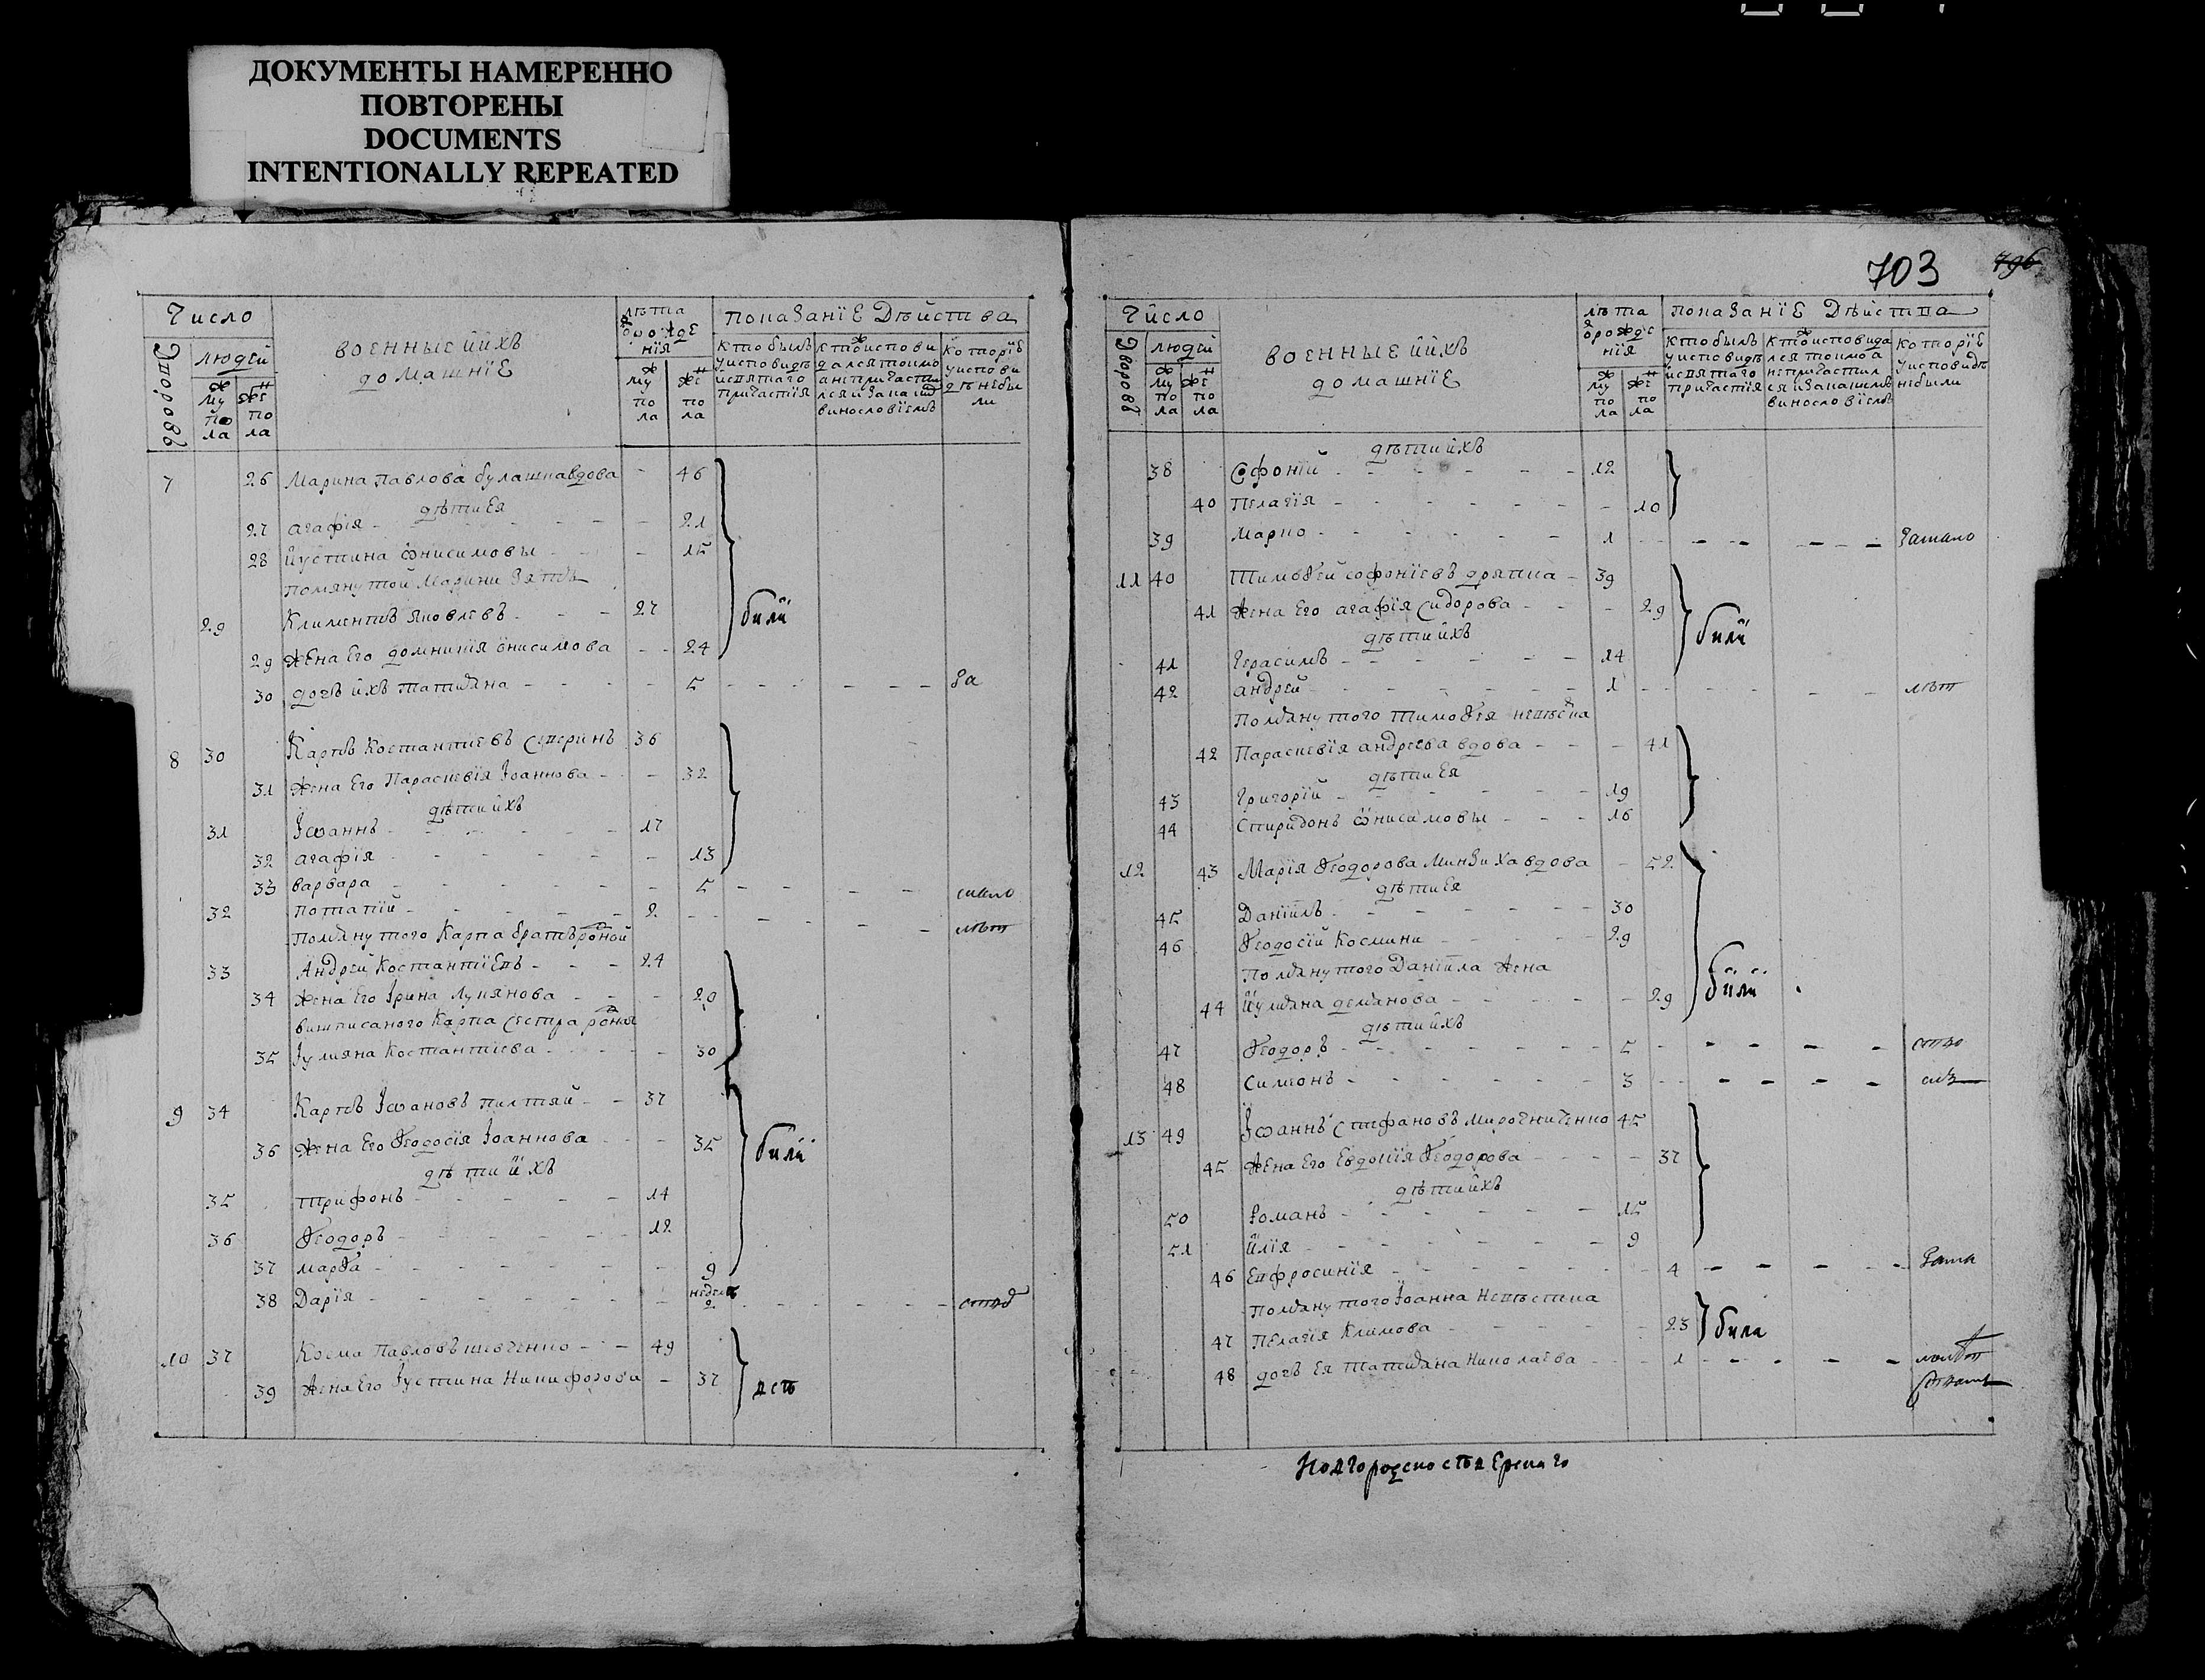 ДОКУМЕНТЫ НАМЕРЕННО
ПОВТОРЕНЫ
DOCUMENTS
INTENTIONALLY REPEATED
Число
дворовъ
людей
муж по ла
жен по ла
военные ӥ ихъ
домашніе
лѣта
ѿ рожде
нія
муж по ла
жен по ла
показаніе дѣйства
кто былъ у исповѣди и святаго причастія
кто исповидался токмо а не причастился и за каким винословіемъ
которіе у исповиди не были
7 26 Марина павлова булашка вдова - 46
дѣти Ея
27 агафія - 21
28 ӥустина ѻнисимовы - 15
помянутой Марини зять
29 Климентъ яковлевъ - 27 били
29 жена Его домникія ѻнисимова - 24
30 дочъ ихъ татіяна - 5 за
8 30 Карпъ Костантіевъ 36
31 жена Его Параскевія Іоаннова - 32
дѣти ихъ
31 Іѡаннъ - 17
32 агафія - 13
33 варвара - 5
32 потапій - 2
помянутого Карпа братъ родной
33 Андрей Костантіевъ - 24
34 жена Его Ірина Лукянова - 20
вишписаного Карпа сестра родная
35 Іулияна Костантіева - 30
9 34 Карпъ Іѡановъ - 37
36 жена Его Ѳеодосія Іоаннова - 35 били
дѣти ихъ
35 трифонъ - 14
36 Ѳеодоръ - 12
37 марѳа - 9
38 Дарія - недель 2
10 37 Косма Павловъ шевченко - 49
39 жена Его Іустина Никифорова - 37
703
796
Число
дворовъ
людей
муж по ла
жен по ла
военные ӥ ихъ
домашніе
лѣта
ѿ рожде
нія
муж по ла
жен по ла
показаніе дѣйства
кто былъ у исповидѣ и святаго причастія
кто исповидался токмо а не причастился и за каким винословіемъ
которіе у исповидѣ не были
дѣти ихъ
38 Софоній - 12
40 Пелагія - 10
39 Марко - 1
11 40 Тимоѳей софоніевъ - 39
41 жена Его агафія Сидорова - 29 били
дѣти ихъ
41 герасимъ - 14
42 андрей - 1 лѣт
помянутого тимоѳея невѣстка
42 Параскевія андреева вдова - 41
дѣти Ея
43 григорій - 19
44 Спиридонъ ѻнисимовы - 16
12 43 Марія Ѳеодорова Минзиха вдова - 52
дѣти Ея
45 Даніилъ - 30
46 Ѳеодосій Космини - 29
помянутого Даніила жена били
44 ӥулияна демянова - 29
дѣти ихъ
47 Ѳеодоръ - 5
48 Симеонъ - 3
13 49 Іѡаннъ Стефановъ мирочниченко 45
45 жена Его Евдокія Ѳеодорова - 37
дѣти ихъ
50 Романъ - 15
51 ӥлія - 9
46 Евфросинія - 4
помянутого Іоанна невѣстка
47 Пелагія Климова - 23 била
48 дочъ Ея татіяна Николаева - 1